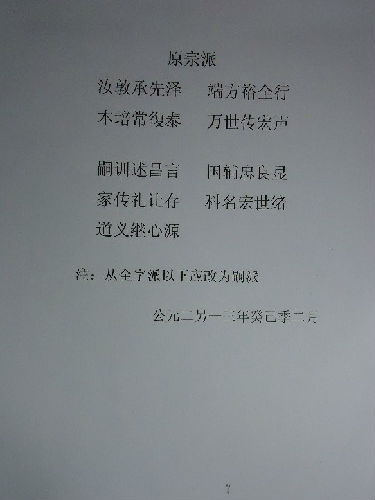 原宗派
汝敦承先泽 端方裕全行
本培常復泰 万世传宏声
嗣训述昌言 国辅席良显
家传礼让存 科名宏世绪
道义继心源
注：从全字派以下应改为嗣派
公元二另一三年癸巳季二月